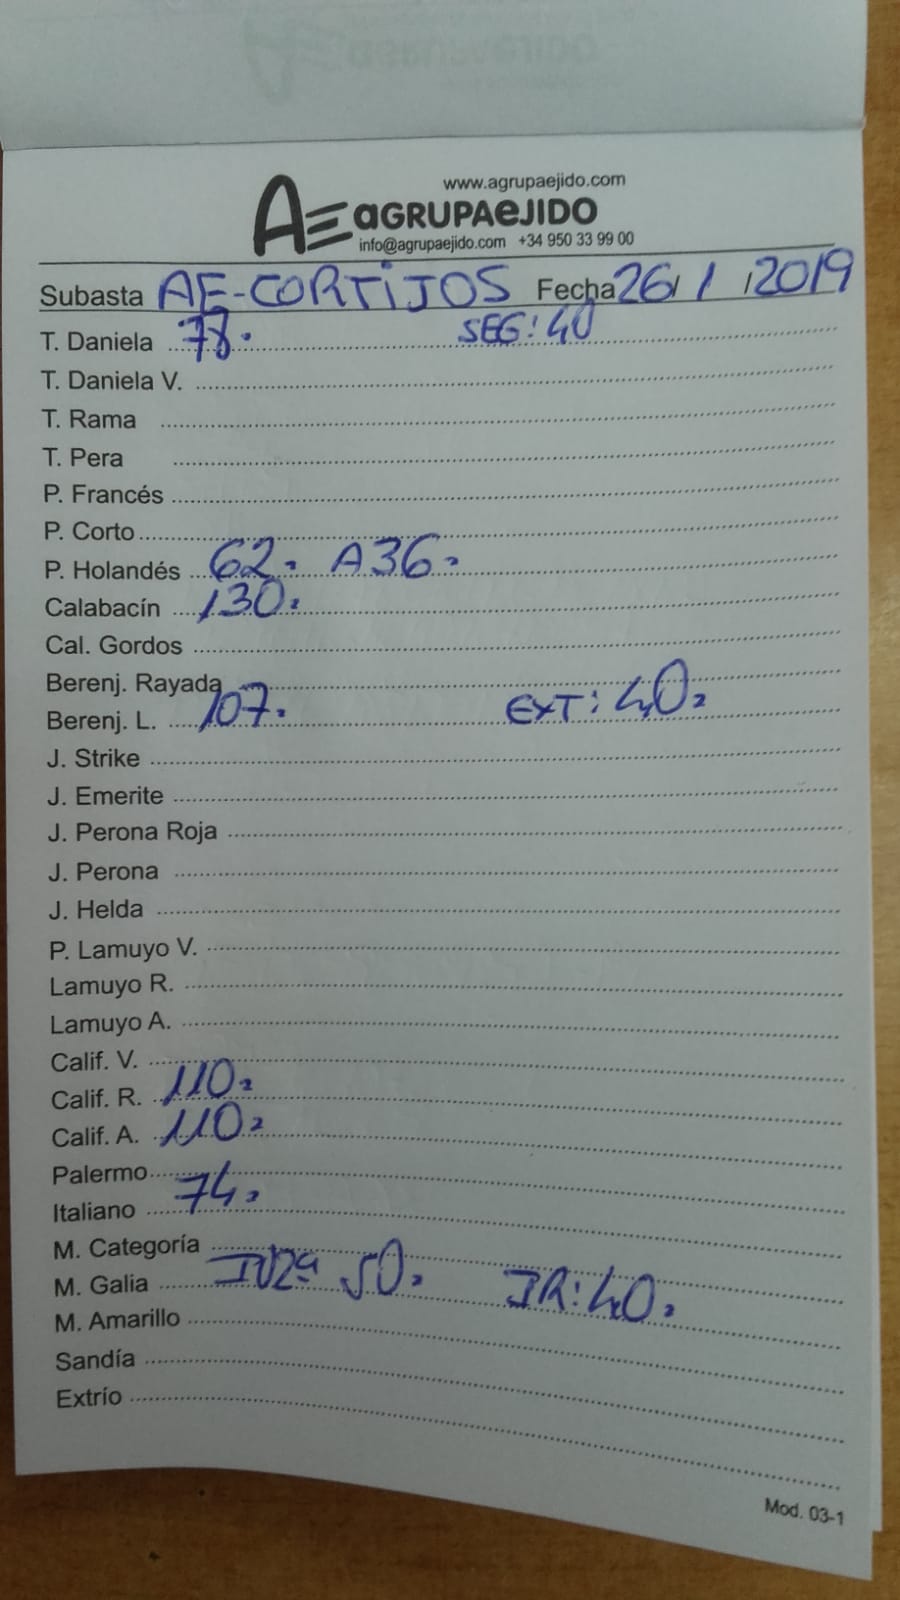 www.agrupaejido.com
AE AGRUPAEJIDO
info@agrupaejido.com +34 950 33 99 00
Subasta AE-CORTIJOS Fecha 26/1/2019
T. Daniela 78. SEG: 40
T. Daniela V.
T. Rama
T. Pera
P. Francés
P. Corto
P. Holandés 62. A36.
Calabacín 130.
Cal. Gordos
Berenj. Rayada
Berenj. L. 107. EXT: 40.
J. Strike
J. Emerite
J. Perona Roja
J. Perona
J. Helda
P. Lamuyo V.
Lamuyo R.
Lamuyo A.
Calif. V.
Calif. R. 110.
Calif. A. 110.
Palermo
Italiano 74.
M. Categoría
M. Galia 50. IR: 40.
M. Amarillo
Sandía
Extrío
Mod. 03-1